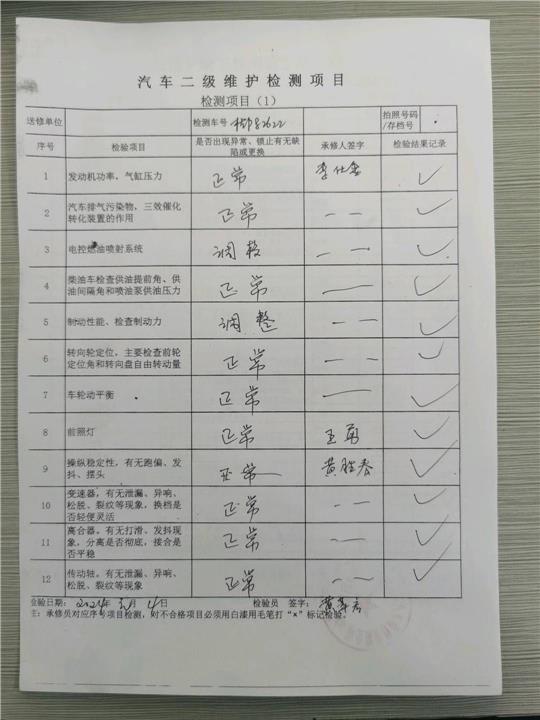 汽车二级维护检测项目
检测项目（1）
送修单位 检测车号 拍照号码/存档号
序号 检验项目 是否出现异常、锁止有无缺陷或更换 承修人签字 检验结果记录
1 发动机功率，气缸压力 正常 ✓
2 汽车排气污染物，三效催化转化装置的作用 正常 — — ✓
3 电控燃油喷射系统 调整 — — ✓
4 柴油车检查供油提前角、供油间隔角和喷油泵供油压力 正常 — — ✓
5 制动性能、检查制动力 调整 — — ✓
6 转向轮定位，主要检查前轮定位角和转向盘自由转动量 正常 — — ✓
7 车轮动平衡 正常 — — ✓
8 前照灯 正常 王勇 ✓
9 操纵稳定性，有无跑偏、发抖、摆头 正常 ✓
10 变速器，有无泄漏、异响、松脱、裂纹等现象，换档是否轻便灵活 正常 — — ✓
11 离合器。有无打滑、发抖现象，分离是否彻底，接合是否平稳 正常 — — ✓
12 传动轴。有无泄漏、异响、松脱、裂纹等现象 正常 — — ✓
检验日期： 年 月 日 检验员 签字：
主：承修员对应序号项目检测，财不合格项目必须用白漆用毛笔打“×”标记检验。